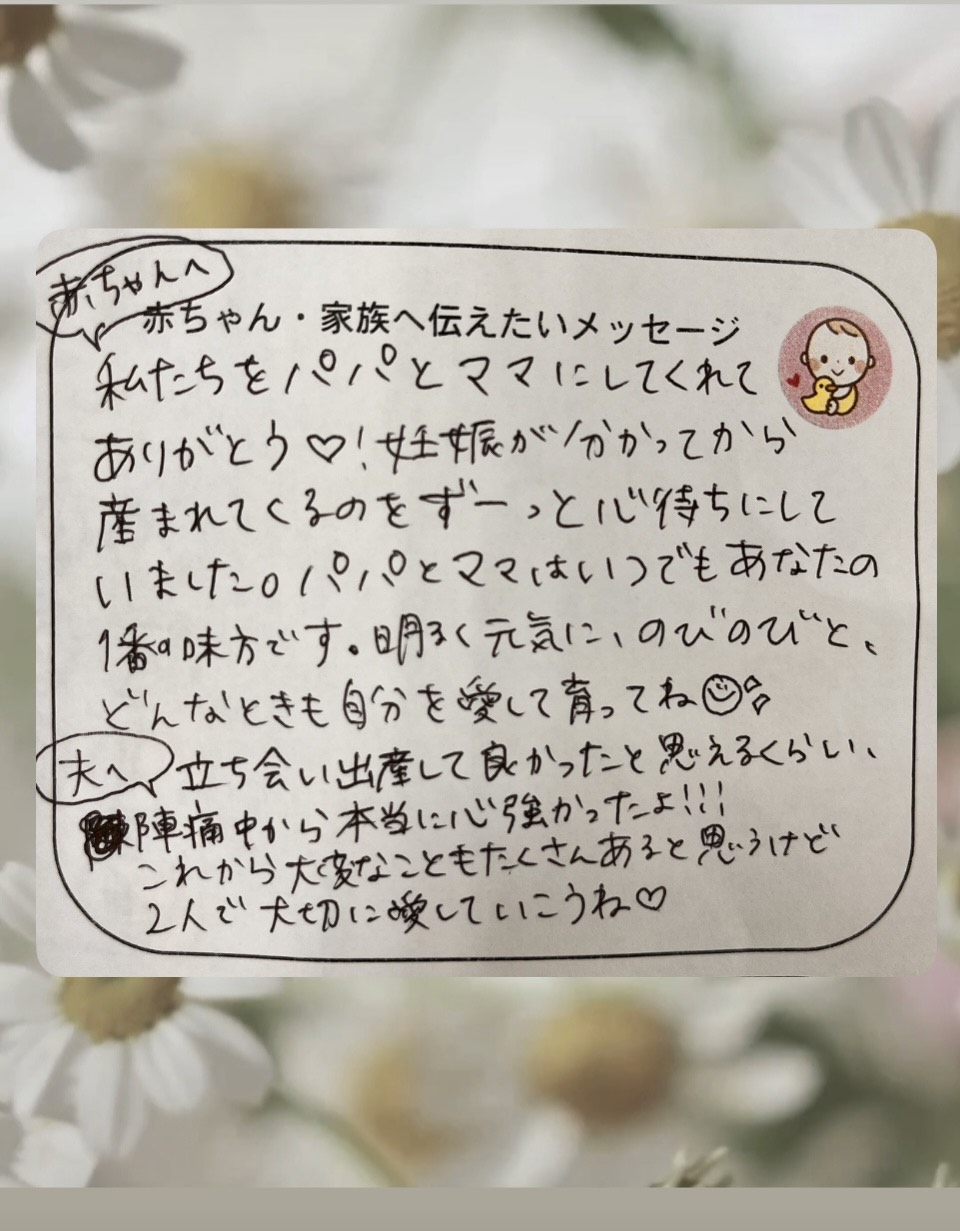 赤ちゃんへ
赤ちゃん・家族へ伝えたいメッセージ
私たちをパパとママにしてくれて
ありがとう♡!妊娠が分かってから
産まれてくるのをずーっと心待ちにして
いました。パパとママはいつでもあなたの
1番の味方です。明るく元気に、のびのびと、
どんなときも自分を愛して育ってね
夫へ 立ち会い出産して良かったと思えるくらい、
陣痛中から本当に心強かったよ!!!
これから大変なこともたくさんあると思うけど
2人で大切に愛していこうね♡